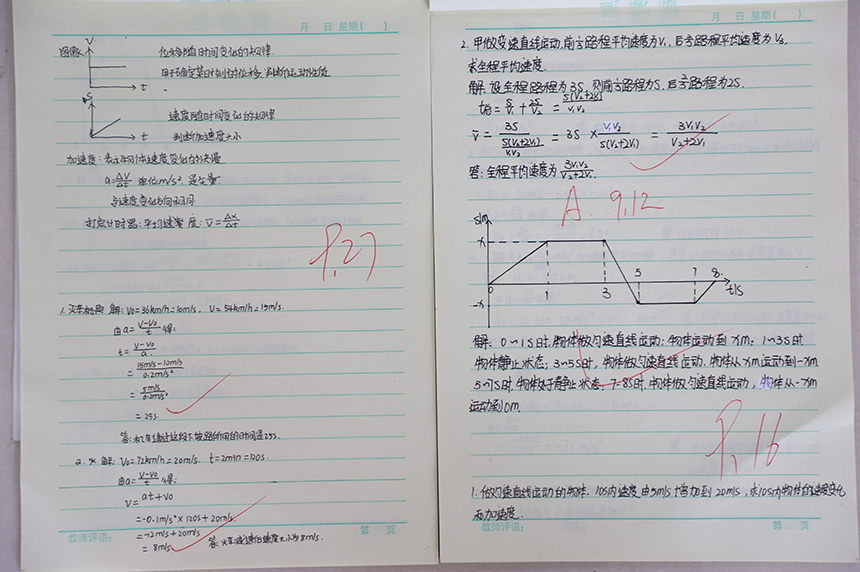 月 日 星期( )
图像
V
t
位移随时间变化的规律.
用于确定某时刻的位移,判断运动性质
S
t
速度随时间变化的规律
判断加速度大小
加速度:表示物体速度变化的快慢
a=ΔV/Δt 单位m/s² 是矢量.
与速度变化方向相同
打点计时器:平均速度:V̄=Δx/Δt
P.27
1. 解:V₀=36km/h=10m/s, V=54km/h=15m/s.
由a=V-V₀/t得:
t=V-V₀/a
=15m/s-10m/s/0.2m/s²
=5m/s/0.2m/s²
=25s.
答:通过这段下坡路所用的时间是25s.
2. 解:V₀=72km/h=20m/s. t=2min=120s.
由a=V-V₀/t得:
V=at+V₀
=-0.1m/s²×120s+20m/s.
=-12m/s+20m/s
=8m/s
答:火车减速后速度大小为8m/s.
教师评语:
第 页
月 日 星期( )
2.甲做变速直线运动,前路程平均速度为V₁,后路程平均速度为V₂.
求全程平均速度.
解:设全程路程为3S,则前路程为S,后路程为2S.
t总=S/V₁+2S/V₂=S(V₂+2V₁)/V₁V₂
V̄=3S/S(V₂+2V₁)/V₁V₂=3S×V₁V₂/S(V₂+2V₁)=3V₁V₂/V₂+2V₁
答:全程平均速度为3V₁V₂/V₂+2V₁.
A. 9.12
s/m
x
5 7 8
0 1 3 t/s
-x
解:0~1s时,物体做匀速直线运动,物体运动到xm;1~3s时
物体静止状态;3~5s时,物体做匀速直线运动,物体从xm运动到-xm
5~7s时,物体处于静止状态,7-8s时,物体做匀速直线运动,物体从-xm
运动到0m.
P.16
1.作匀速直线运动的物体,10s内速度由5m/s增加到20m/s,求10s内物体的速度变化
和加速度.
教师评语:
第 页